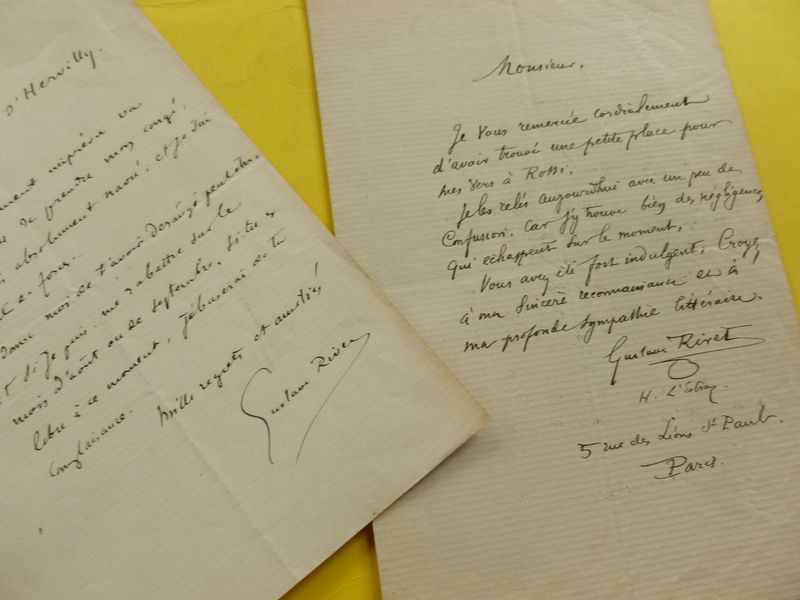 d'Hervilly.
va
de prendre mon congé.
absolument navré; et je t'ai
moi de t'avoir dérangé
si je puis me rabattre sur le
mois d'août ou de septembre, si tu es
libre à ce moment, j'abuserai de ta
complaisance.
Mille regrets et amitiés
Gustave Rivet
Monsieur,
Je vous remercie cordialement
d'avoir trouvé une petite place pour
mes vers à Rossi.
Je les relis aujourd'hui avec un peu de
confusion. Car j'y trouve bien des négligences
qui échappent sur le moment.
Vous avez été fort indulgent, Croyez
à ma sincère reconnaissance et à
ma profonde sympathie littéraire.
Gustave Rivet
5 rue des Lions St Paul.
Paris.